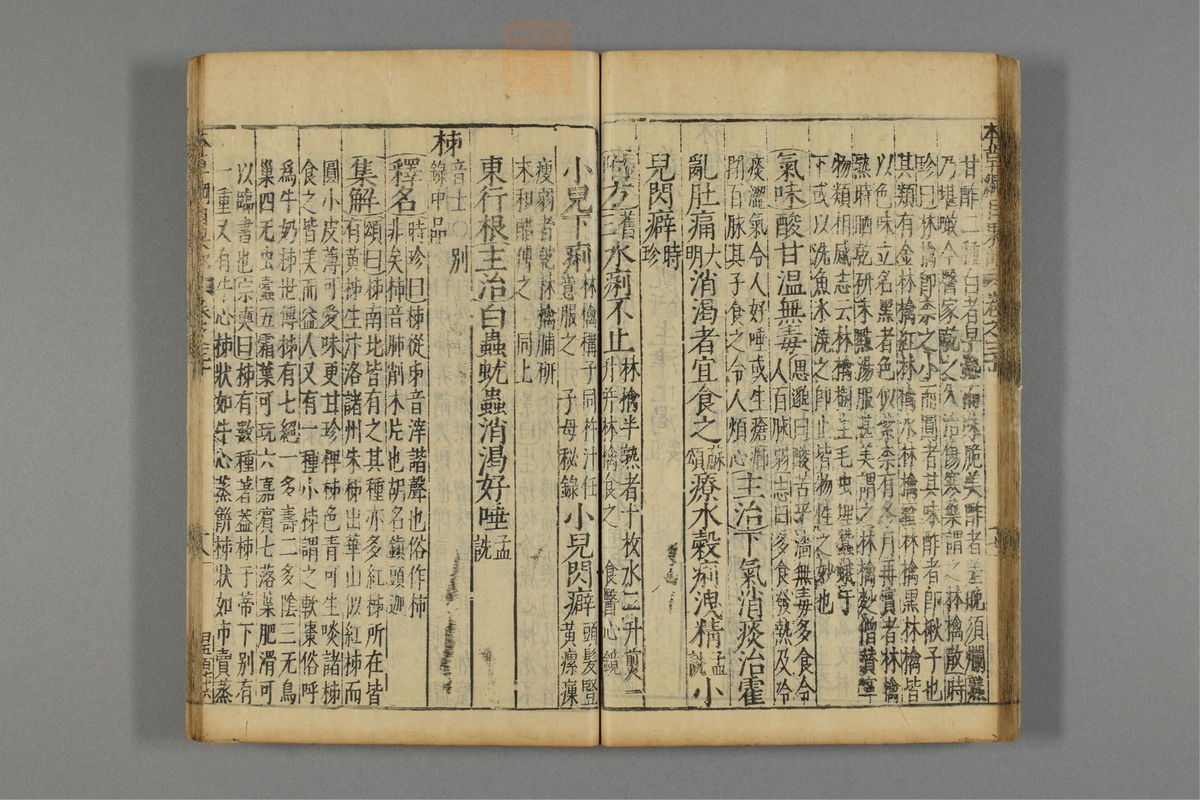 甘酢二種白者早熟而味脆美酢者差晚須爛熟
乃堪噉今醫家乾之入治傷寒藥謂之林檎散時
珍曰林檎卽柰之小而圓者其味酢者卽楸子也
其類有金林檎紅林檎水林檎蜜林檎黑林檎皆
以色味立名黑者色似紫柰有冬月再實者林檎
熟時晒乾研末點湯服甚美謂之林檎麨僧贊寧
物類相感志云林檎樹生毛虫埋蠶蛾于
下或以洗魚水澆之卽止皆物性之妙也
氣味酸甘温無毒思邈曰酸苦平濇無毒多食令
人百脉弱志曰多食發熱及冷
痰澀氣令人好唾或生瘡癤
閉百脉其子食之令人煩心主治下氣消痰治霍
亂肚痛大明消渴者宜食之蘇頌療水穀痢洩精孟詵小
兒閃癖時珍
附方舊三水痢不止林檎半熟者十枚水二升煎一
升幷林檎食之 食醫心鏡
小兒下痢林檎構子同杵汁任
意服之 子母秘錄小兒閃癖頭髮豎
黃瘰癧
瘦弱者乾林檎脯研
末和醋傅之 同上
東行根主治白蟲蚘蟲消渴好唾孟詵
柹
音士
別
錄中品
釋名時珍曰柹從𠂔音滓諧聲也俗作柿
非矣柿音肺削木片也胡名鎮頭迦
集解頌曰柹南北皆有之其種亦多紅柹所在皆
有黃柹生汴洛諸州朱柹出華山似紅柹而
圓小皮薄可愛味更甘珍椑柹色青可生啖諸柹
食之皆美而益人又有一種小柹謂之軟棗俗呼
爲牛奶柹世傳柹有七絕一多壽二多陰三无鳥
巢四无虫蠹五霜葉可玩六嘉賓七落葉肥滑可
以臨書也宗奭曰柹有數種著蓋柹于蒂下別有
一重又有牛心柹狀如牛心蒸餠柹狀如市賣蒸